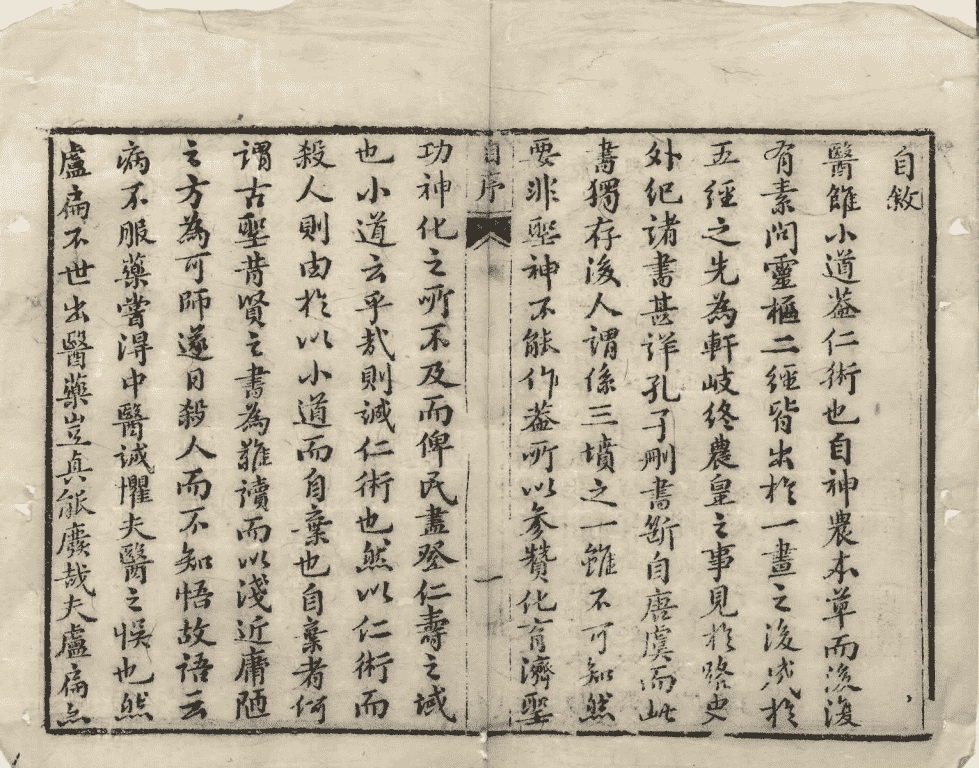 自敘
醫雖小道蓋仁術也自神農本草而後復
有素問靈樞二經皆出於一畫之後成於
五經之先為軒岐終農皇之事見於路史
外紀諸書甚詳孔子刪書斷自唐虞而此
書獨存後人謂係三墳之一雖不可知然
要非聖神不能作蓋所以參贊化育濟聖
自序
一
功神化之所不及而俾民盡登仁壽之域
也小道云乎哉則誠仁術也然以仁術而
殺人則由於以小道而自棄也自棄者何
謂古聖昔賢之書為難讀而以淺近庸陋
之方為可師遂日殺人而不知悟故語云
病不服藥嘗得中醫誠懼夫醫之悞也然
盧扁不世出醫藥豈真能廢哉夫盧扁亦